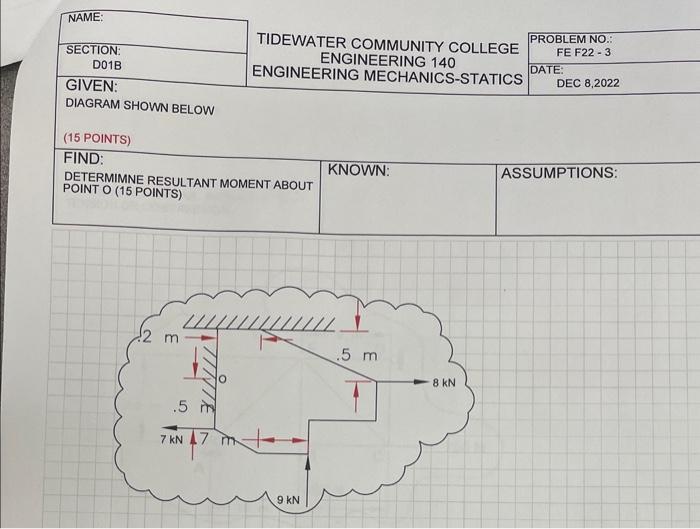 NAME:
TIDEWATER COMMUNITY COLLEGE
ENGINEERING 140
ENGINEERING MECHANICS-STATICS
PROBLEM NO.:
FE F22 - 3
SECTION:
D01B
DATE:
DEC 8,2022
GIVEN:
DIAGRAM SHOWN BELOW
(15 POINTS)
FIND:
DETERMIMNE RESULTANT MOMENT ABOUT
POINT O (15 POINTS)
KNOWN:
ASSUMPTIONS:
.2 m
.5 m
O
8 kN
.5 m
7 kN
.7 m
9 kN